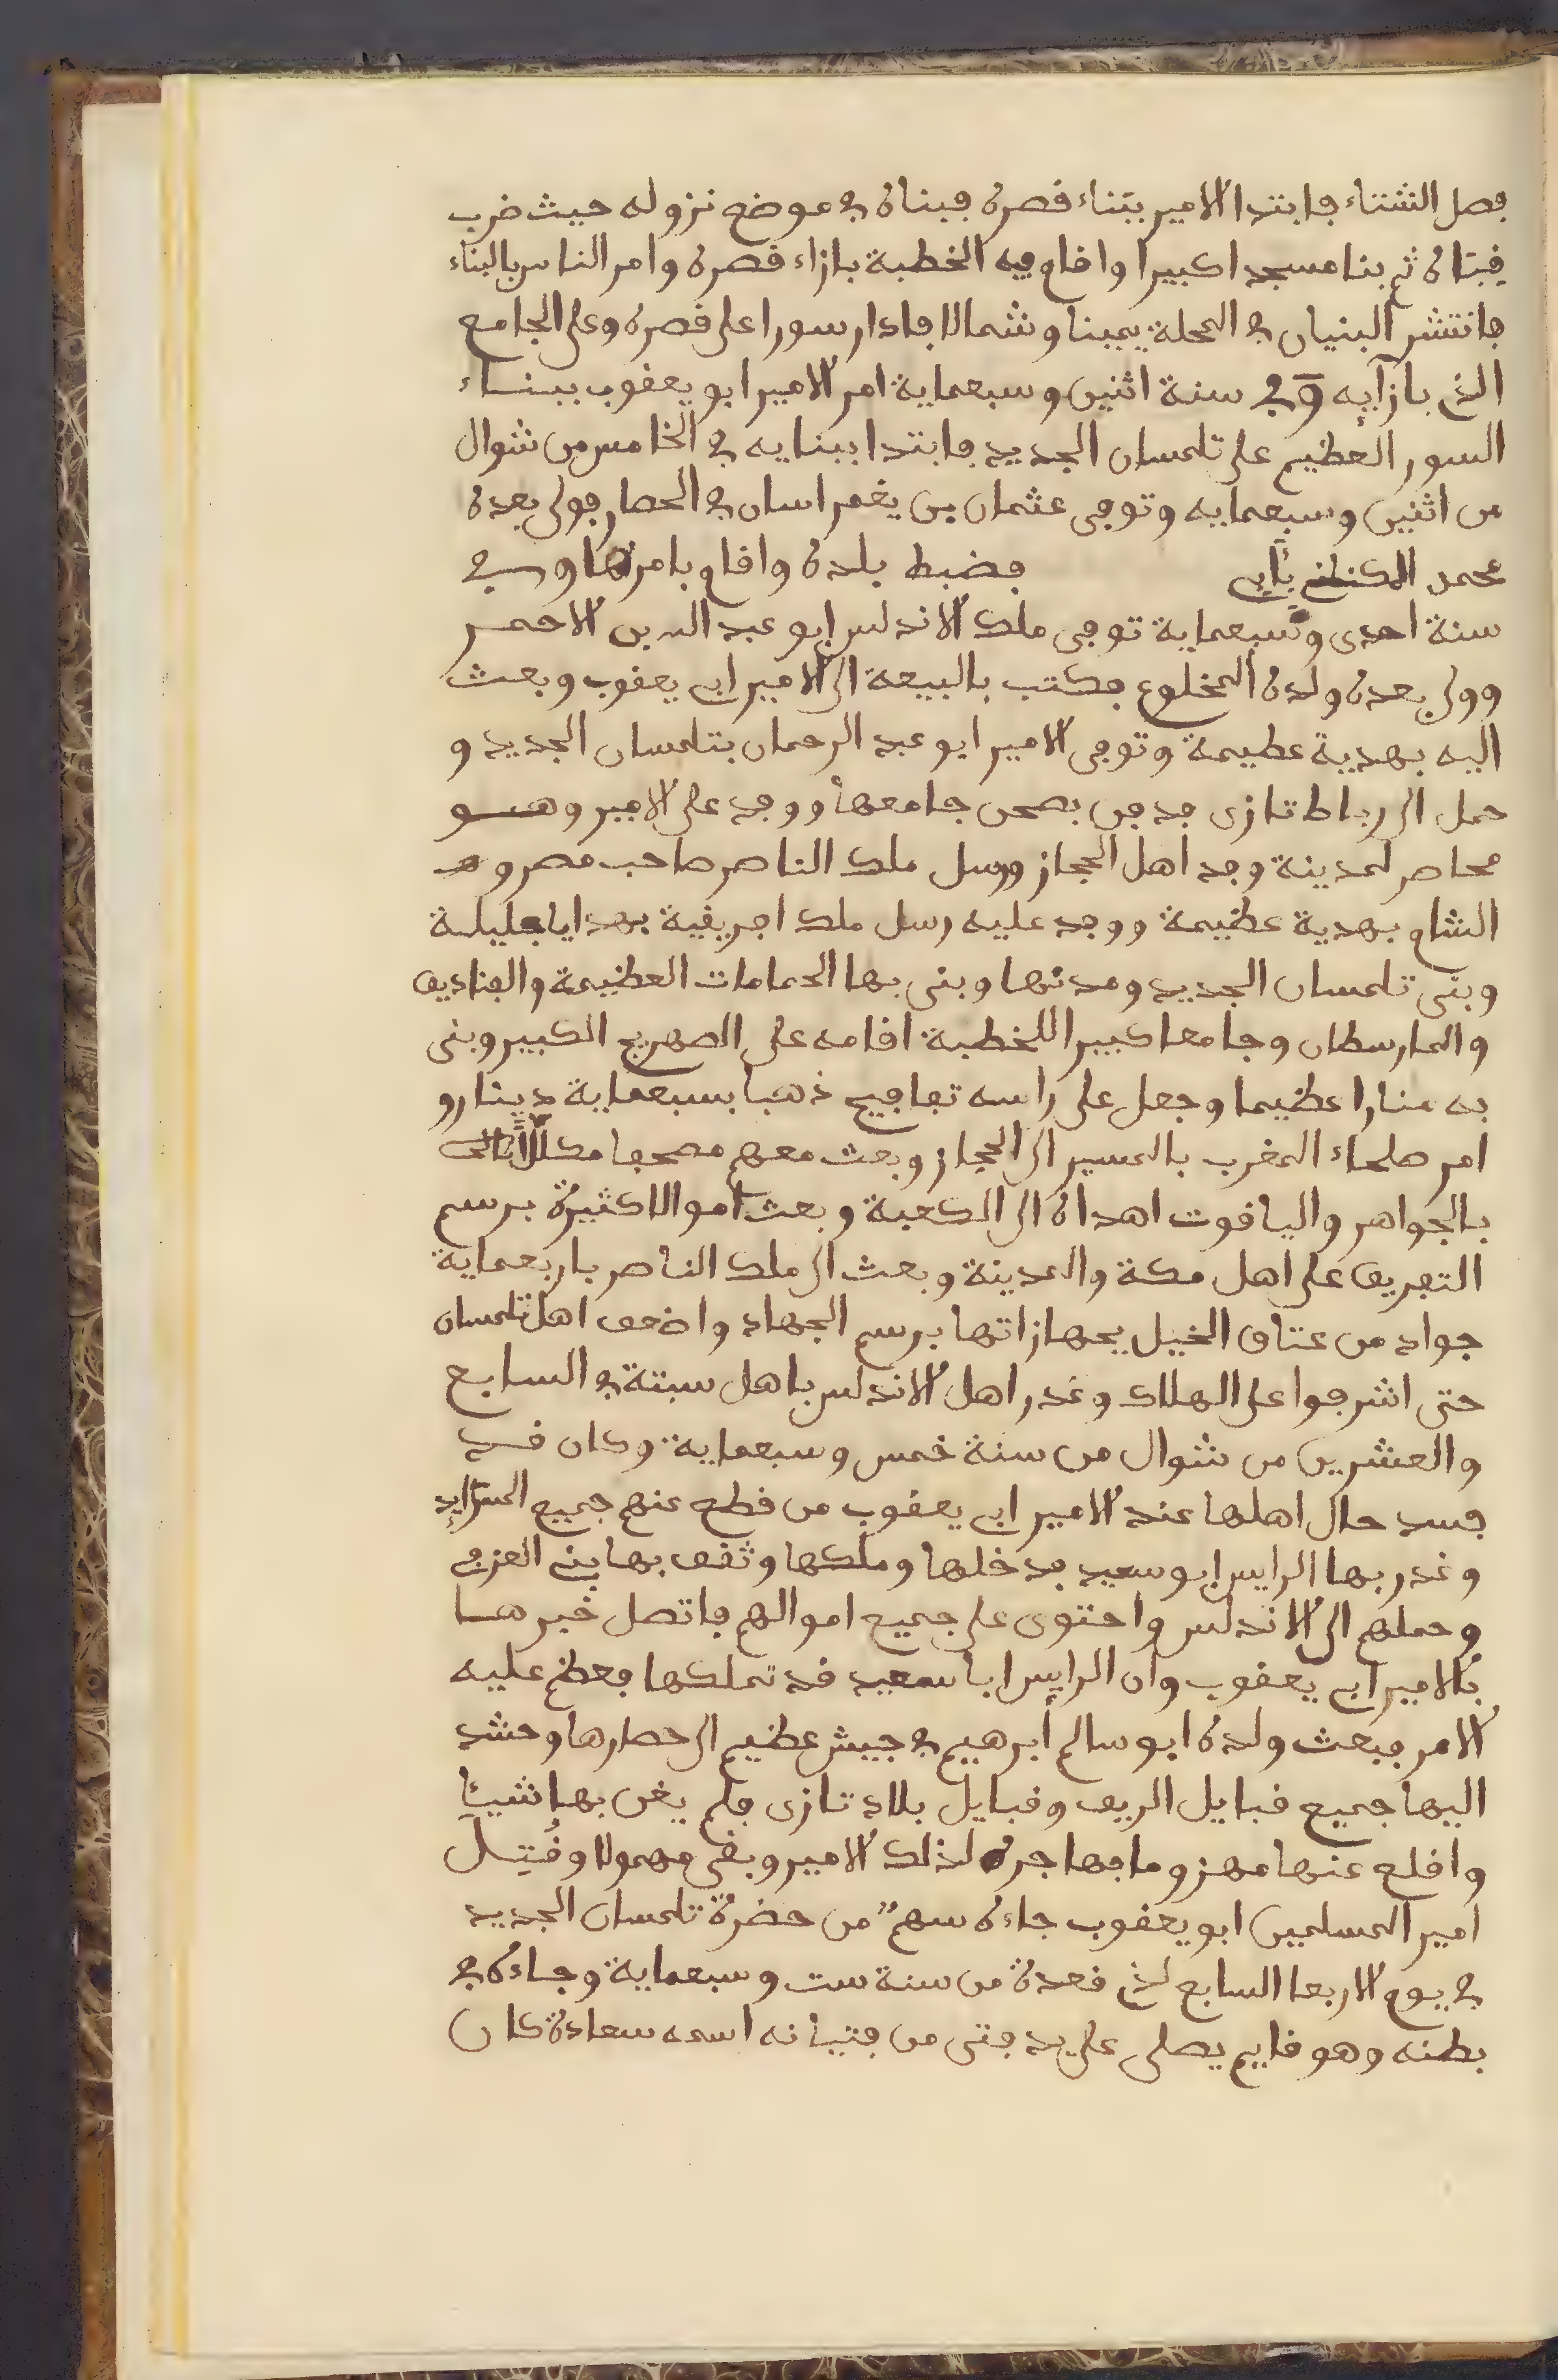 فصل الشتاء فابتدا الامير ببناء قصره فبناه في موضع نزوله حيث ضرب
قبتاه ثم بنا مسجدا كبيرا واقام فيه الخطبة بازاء قصره وامر الناس بالبناء
فانتشر البنيان في المحلة يمينا وشمالا فادار سورا على قصره وعلى الجامع
الذي بازآيه وفي سنة اثنين وسبعماية امر الامير ابو يعقوب ببناء
السور العظيم على تلمسان الجديد فابتدا ببنايه في الخامس من شوال
من اثنين وسبعمايه وتوفي عثمان بن يغمراسان في الحصار فولي بعده
محمد المكنى بأبي فضبط بلده واقام بامرها وفي
سنة احدى وسبعماية توفي ملك الاندلس ابو عبد الله بن الاحمر
وولي بعده ولده المخلوع فكتب بالبيعة الى الامير ابي يعقوب وبعث
اليه بهدية عظيمة وتوفي الامير ابو عبد الرحمان بتلمسان الجديد و
حمل الى رباط تازى فدفن بصحن جامعها ووفد على الامير وهو
محاصر لمدينة وفد اهل الحجاز ورسل ملك الناصر صاحب مصر و
الشام بهدية عظيمة ووفد عليه رسل ملك افريقية بهدايا جليلة
وبنى تلمسان الجديد ومدنها وبنى بها الحمامات العظيمة والفناديق
والمارسطان وجامعا كبيرا للخطبة اقامه على الصهريج الكبير وبنى
به منارا عظيما وجعل على راسه تفافيح ذهبا بسبعماية دينار و
امر صلحاء المغرب بالمسير الى الحجاز وبعث معهم مصحفا مكللا
بالجواهر والياقوت اهداه الى الكعبة وبعث اموالا كثيرة برسم
التفريق على اهل مكة والمدينة وبعث الى ملك الناصر باربعماية
جواد من عتاق الخيل بجهازاتها برسم الجهاد واضعف اهل تلمسان
حتى اشرفوا على الهلاك وغدر اهل الاندلس باهل سبتة في السابع
والعشرين من شوال من سنة خمس وسبعماية وكان قد
فسد حال اهلها عند الامير ابي يعقوب من قطع عنهم جميع
وغدر بها الرايس ابو سعيد فدخلها وملكها وثقف بها بني العزفي
وحملهم الى الاندلس واحتوى على جميع اموالهم فاتصل خبرها
بالامير ابي يعقوب وان الرايس ابا سعيد قد تملكها فعظم عليه
الامر فبعث ولده ابو سالم أبرهيم في جيش عظيم الى حصارها وحشد
اليها جميع قبايل الريف وقبايل بلاد تازى فلم يغن بها شيئا
واقلع عنها مهزوما فهاجره لذلك الامير وبقي مهمولا وقُتِل
امير المسلمين ابو يعقوب جاءه سهم من حضرة تلمسان الجديد
في يوم الاربعا السابع لذي قعدة من سنة ست وسبعماية وجاءه في
بطنه وهو قايم يصلي على يد فتى من فتيانه اسمه سعادة كان